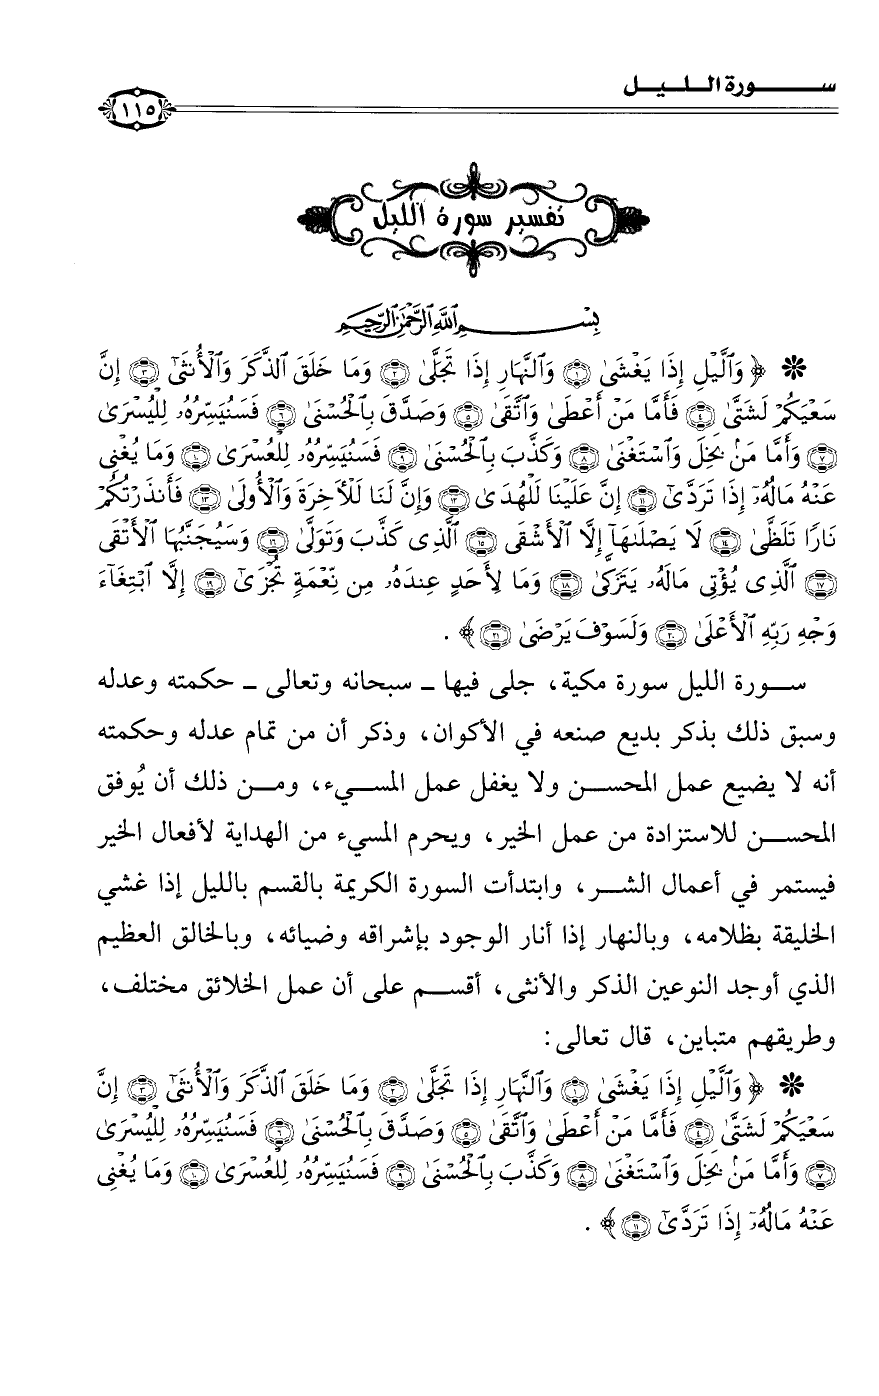 ســــورة الـلـيـــل
١١٥
تفسير سورة الليل
بِسْــــــمِ اللَّهِ الرَّحْمَٰنِ الرَّحِيمِ
❊ ﴿ وَٱلَّيْلِ إِذَا يَغْشَىٰ ۝١ وَٱلنَّهَارِ إِذَا تَجَلَّىٰ ۝٢ وَمَا خَلَقَ ٱلذَّكَرَ وَٱلْأُنثَىٰٓ ۝٣ إِنَّ
سَعْيَكُمْ لَشَتَّىٰ ۝٤ فَأَمَّا مَنْ أَعْطَىٰ وَٱتَّقَىٰ ۝٥ وَصَدَّقَ بِٱلْحُسْنَىٰ ۝٦ فَسَنُيَسِّرُهُۥ لِلْيُسْرَىٰ
۝٧ وَأَمَّا مَنۢ بَخِلَ وَٱسْتَغْنَىٰ ۝٨ وَكَذَّبَ بِٱلْحُسْنَىٰ ۝٩ فَسَنُيَسِّرُهُۥ لِلْعُسْرَىٰ ۝١٠ وَمَا يُغْنِى
عَنْهُ مَالُهُۥٓ إِذَا تَرَدَّىٰٓ ۝١١ إِنَّ عَلَيْنَا لَلْهُدَىٰ ۝١٢ وَإِنَّ لَنَا لَلْـَٔاخِرَةَ وَٱلْأُولَىٰ ۝١٣ فَأَنذَرْتُكُمْ
نَارًا تَلَظَّىٰ ۝١٤ لَا يَصْلَىٰهَآ إِلَّا ٱلْأَشْقَى ۝١٥ ٱلَّذِى كَذَّبَ وَتَوَلَّىٰ ۝١٦ وَسَيُجَنَّبُهَا ٱلْأَتْقَى
۝١٧ ٱلَّذِى يُؤْتِى مَالَهُۥ يَتَزَكَّىٰ ۝١٨ وَمَا لِأَحَدٍ عِندَهُۥ مِن نِّعْمَةٍ تُجْزَىٰٓ ۝١٩ إِلَّا ٱبْتِغَآءَ
وَجْهِ رَبِّهِ ٱلْأَعْلَىٰ ۝٢٠ وَلَسَوْفَ يَرْضَىٰ ۝٢١ ﴾ .
ســورة الليل سورة مكية، جلى فيها ـ سبحانه وتعالى ـ حكمته وعدله
وسبق ذلك بذكر بديع صنعه في الأكوان، وذكر أن من تمام عدله وحكمته
أنه لا يضيع عمل المحســن ولا يغفل عمل المســيء، ومــن ذلك أن يُوفق
المحســن للاستزادة من عمل الخير، ويحرم المسيء من الهداية لأفعال الخير
فيستمر في أعمال الشــر، وابتدأت السورة الكريمة بالقسم بالليل إذا غشي
الخليقة بظلامه، وبالنهار إذا أنار الوجود بإشراقه وضيائه، وبالخالق العظيم
الذي أوجد النوعين الذكر والأنثى، أقســم على أن عمل الخلائق مختلف،
وطريقهم متباين، قال تعالى:
❊ ﴿ وَٱلَّيْلِ إِذَا يَغْشَىٰ ۝١ وَٱلنَّهَارِ إِذَا تَجَلَّىٰ ۝٢ وَمَا خَلَقَ ٱلذَّكَرَ وَٱلْأُنثَىٰٓ ۝٣ إِنَّ
سَعْيَكُمْ لَشَتَّىٰ ۝٤ فَأَمَّا مَنْ أَعْطَىٰ وَٱتَّقَىٰ ۝٥ وَصَدَّقَ بِٱلْحُسْنَىٰ ۝٦ فَسَنُيَسِّرُهُۥ لِلْيُسْرَىٰ
۝٧ وَأَمَّا مَنۢ بَخِلَ وَٱسْتَغْنَىٰ ۝٨ وَكَذَّبَ بِٱلْحُسْنَىٰ ۝٩ فَسَنُيَسِّرُهُۥ لِلْعُسْرَىٰ ۝١٠ وَمَا يُغْنِى
عَنْهُ مَالُهُۥٓ إِذَا تَرَدَّىٰٓ ۝١١ ﴾ .